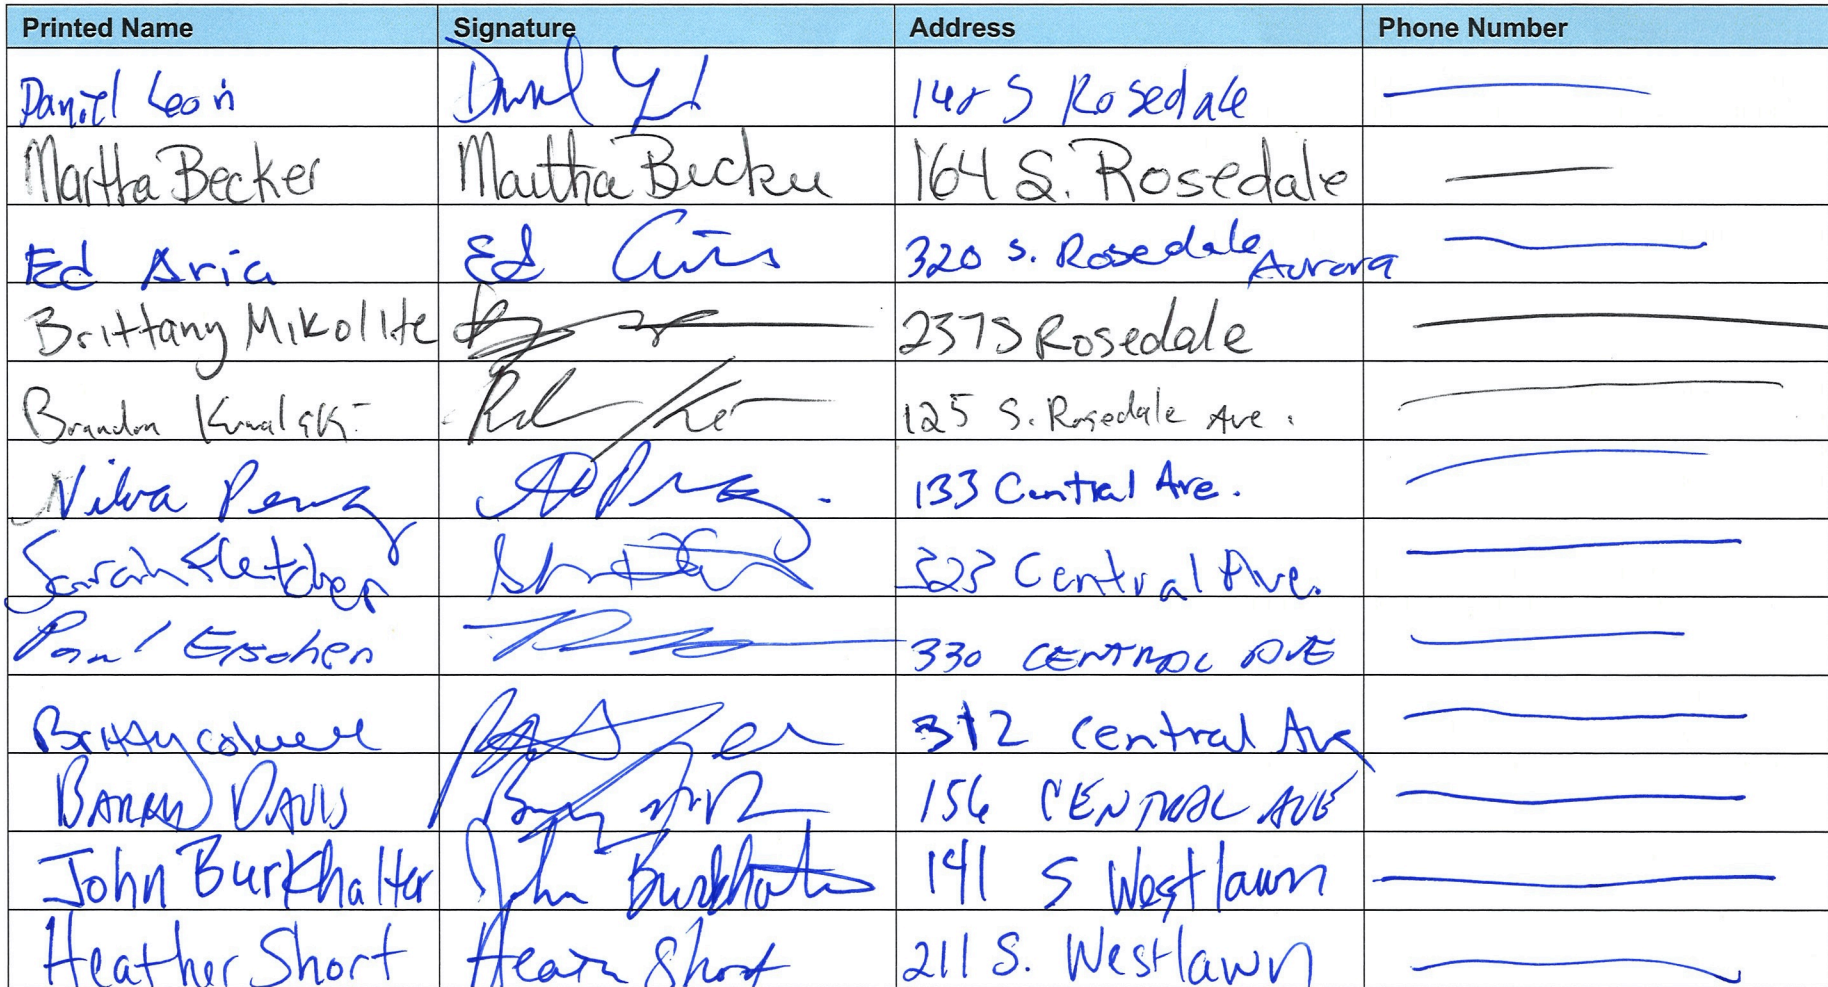 Printed Name Signature Address Phone Number
Daniel Leon 148 S Rosedale
Martha Becker Martha Becker 164 S. Rosedale
Ed Aria Ed 320 S. Rosedale Aurora
Brittany Mikollte 237 S Rosedale
Brandon Kowalski 125 S. Rosedale Ave.
Nilva Perez 133 Central Ave.
Sarah Fletcher 323 Central Ave.
Paul 330 CENTRAL AVE
312 Central Ave
BARRY DAVIS 156 CENTRAL AVE
John Burkhalter John Burkhalter 141 S Westlawn
Heather Short Heather Short 211 S. Westlawn